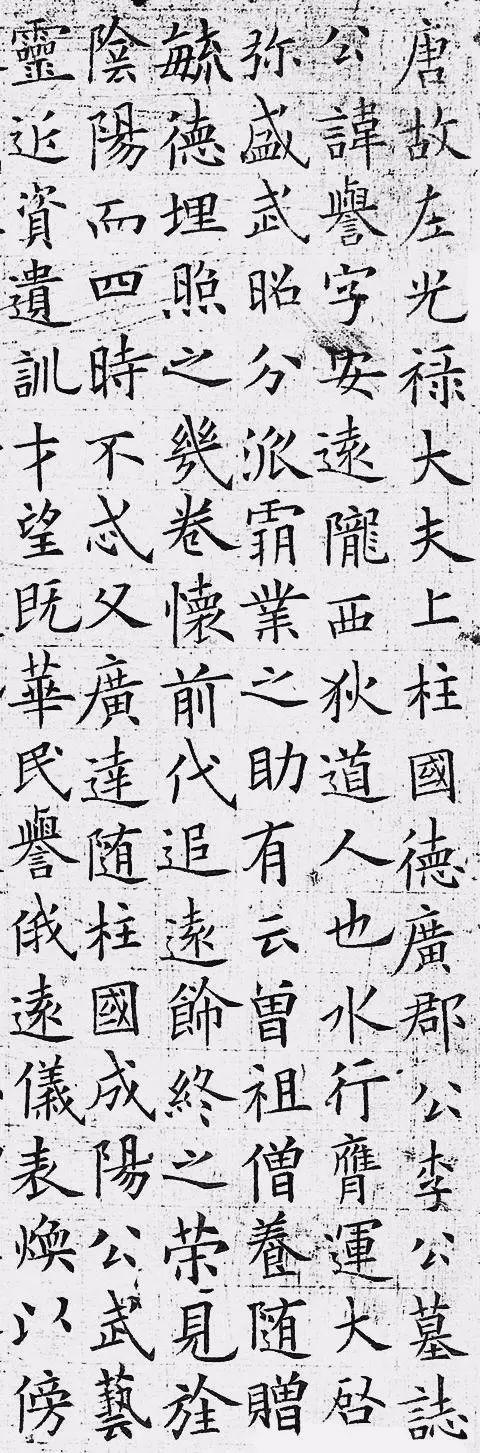 唐故左光禄大夫上柱國德廣郡公李公墓誌
公諱譽字安遠隴西狄道人也水行膺運大啓
弥盛武昭分派霸業之助有云曾祖僧養随贈
毓德埋照之㡬卷懷前代追遠飾終之荣見旌
陰陽而四時不忒父廣達随柱國成陽公武藝
靈近資遺訓才望既華民譽俄遠儀表煥以傍